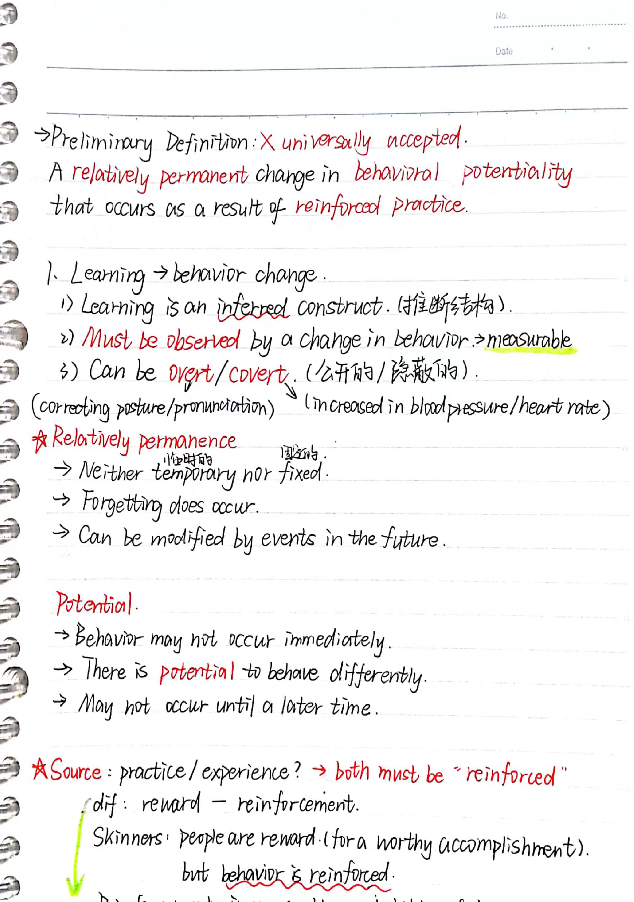 No.
Date
→Preliminary Definition: X universally accepted.
A relatively permanent change in behavioral potentiality
that occurs as a result of reinforced practice.
1. Learning → behavior change.
1) Learning is an inferred construct. (推断结构).
2) Must be observed by a change in behavior.→measurable
3) Can be overt/covert. (公开的/隐蔽的).
(correcting posture/pronunciation) (increased in blood pressure/heart rate)
☆Relatively permanence
临时的 固定的
→ Neither temporary nor fixed.
→ Forgetting does occur.
→ Can be modified by events in the future.
Potential.
→ Behavior may not occur immediately.
→ There is potential to behave differently.
→ May not occur until a later time.
☆Source: practice/experience? → both must be "reinforced"
dif: reward — reinforcement.
Skinners: people are reward.(for a worthy accomplishment).
but behavior is reinforced.